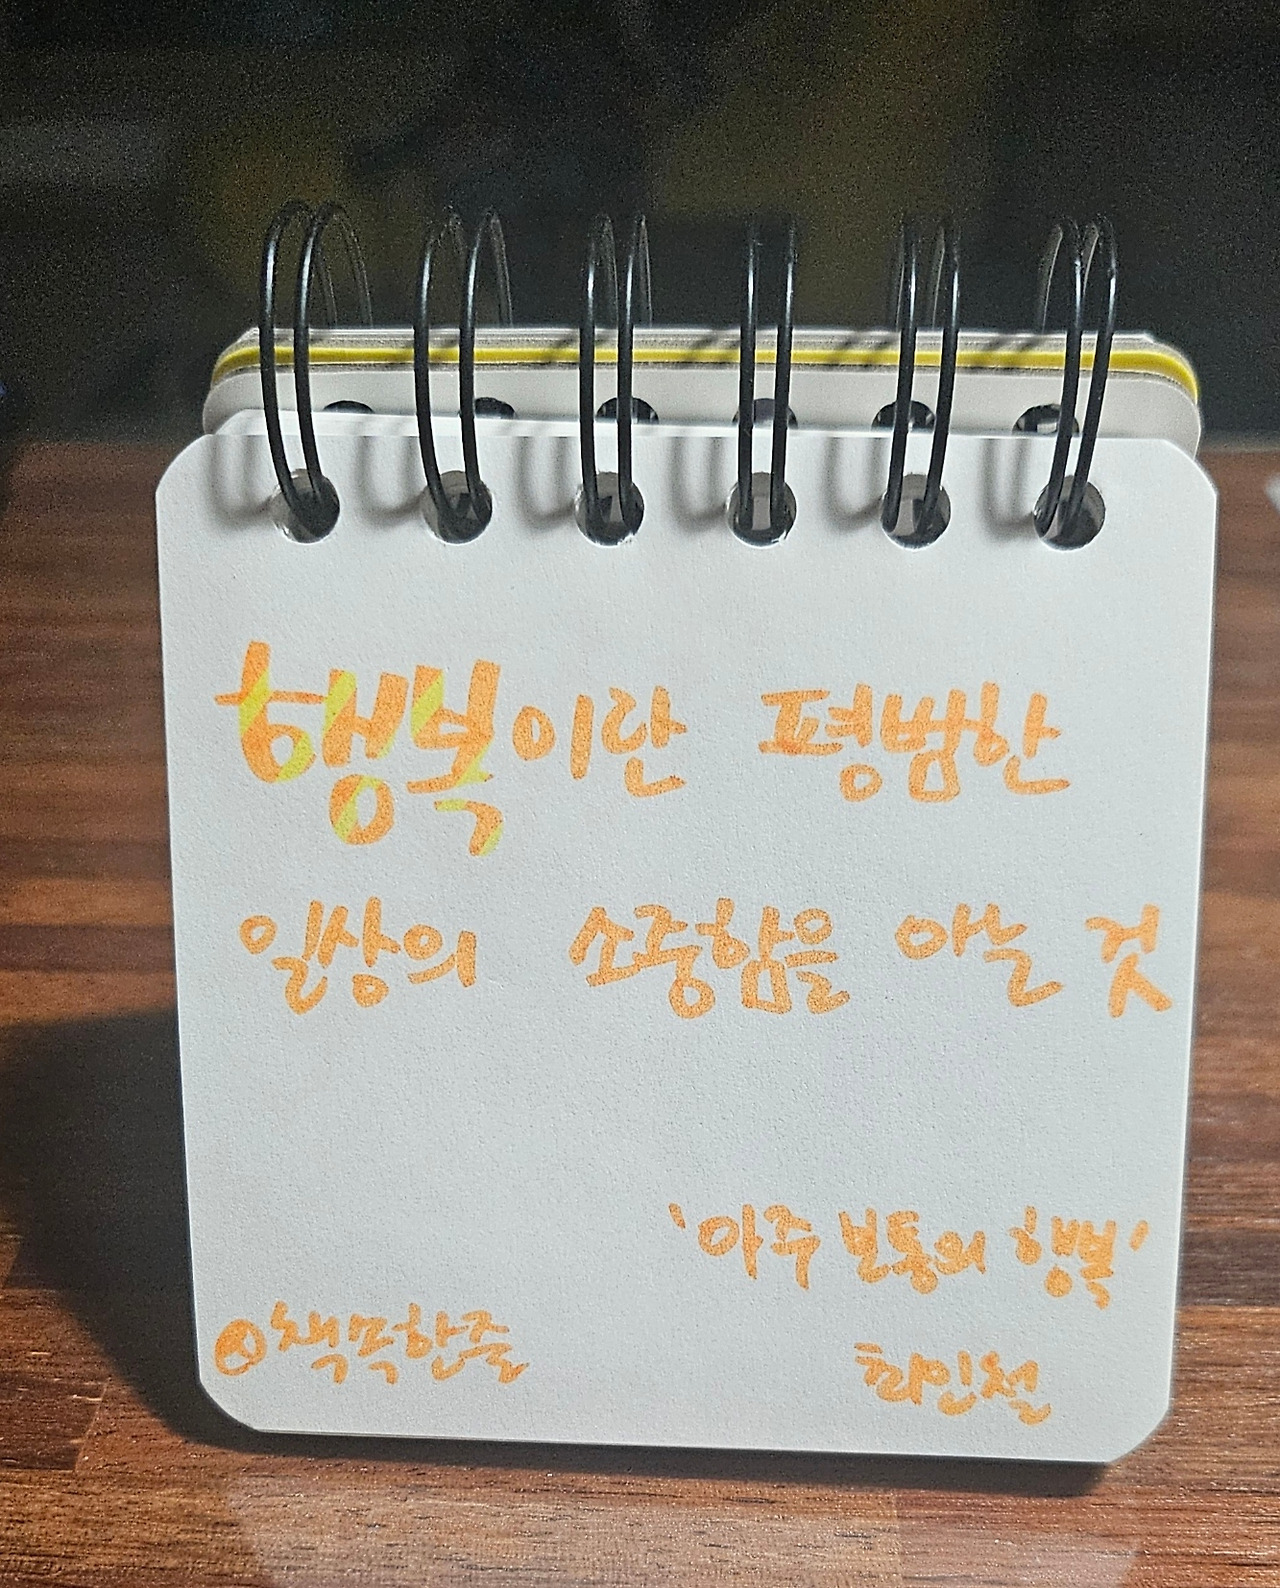 행복이란 평범한
일상의 소중함을 아는 것
'아주 보통의 행복'
최인철
@책속한줄